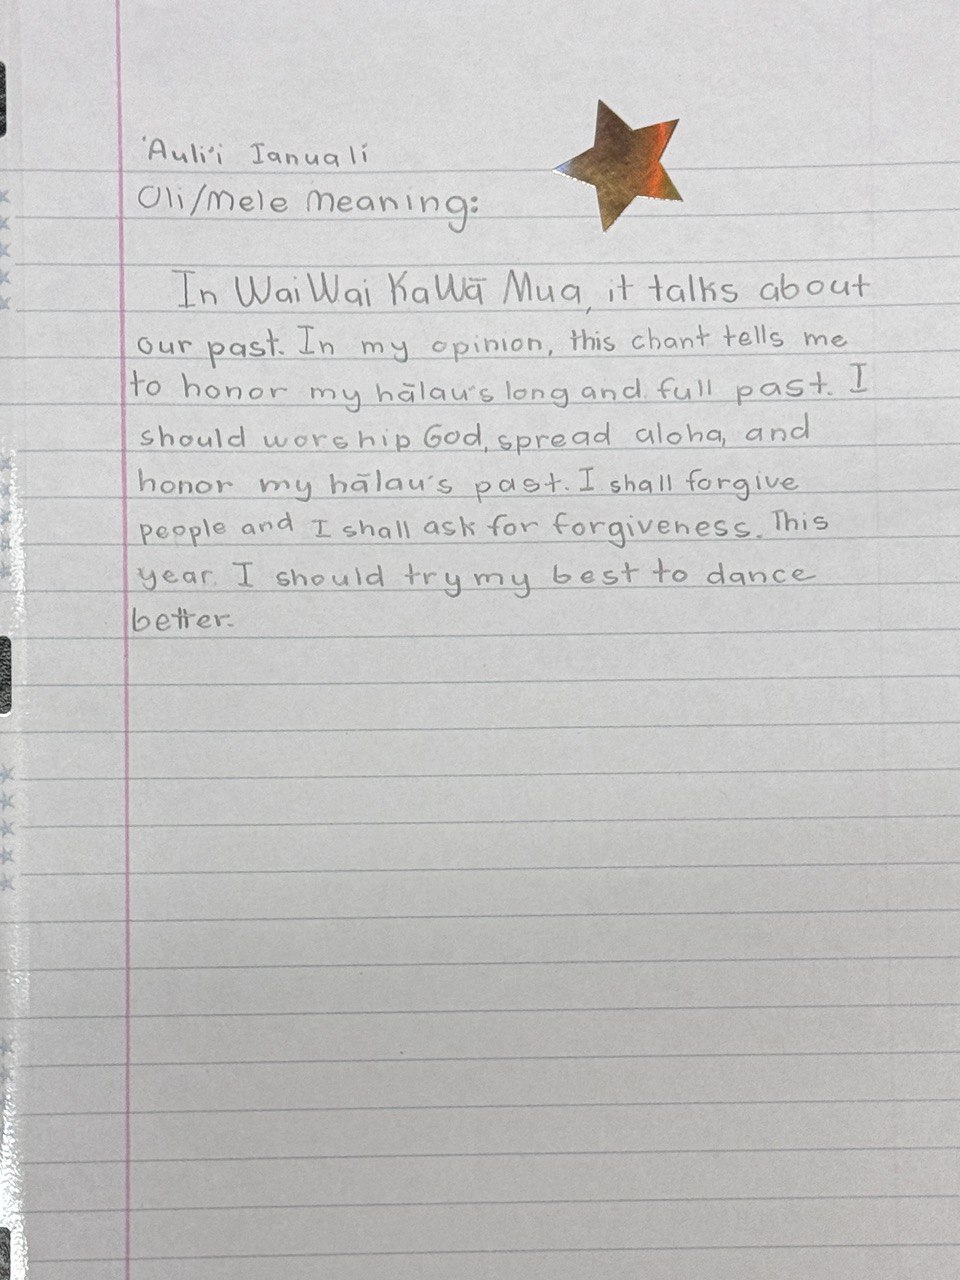 'Auli'i Ianuali
Oli/Mele Meaning:
In WaiWai KaWā Mua, it talks about
our past. In my opinion, this chant tells me
to honor my hālau's long and full past. I
should worship God, spread aloha, and
honor my hālau's past. I shall forgive
people and I shall ask for forgiveness. This
year I should try my best to dance
better.